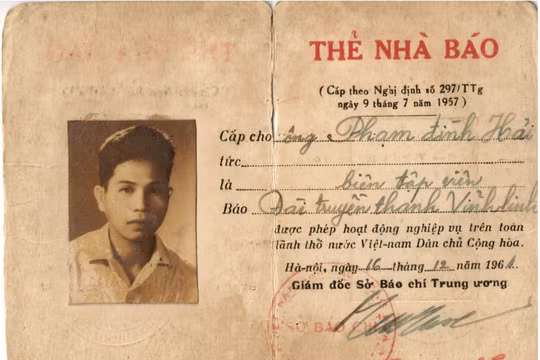 THẺ NHÀ BÁO
( Cấp theo Nghị định số 297/TTg
ngày 9 tháng 7 năm 1957 )
Cấp cho ông Phạm đình Hải
tức
là biên tập viên
Báo Đài truyền thanh Vĩnh linh
được phép hoạt động nghiệp vụ trên toàn
lãnh thổ nước Việt-nam Dân chủ Cộng hòa.
Hà-nội, ngày 16 tháng 12 năm 1961.
Giám đốc Sở Báo chí Trung ương
SỞ BÁO CHÍ